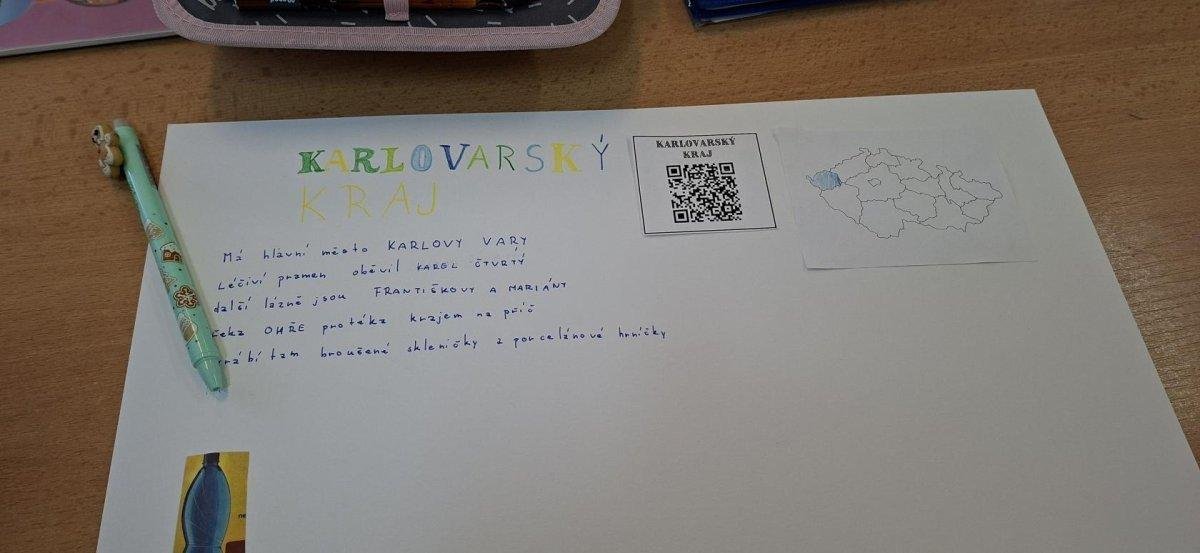 KARLOVARSKÝ
KRAJ
KARLOVARSKÝ
KRAJ
Má hlavní město KARLOVY VARY
Léčiví pramen oběvil KAREL ČTVRTÝ
další lázně jsou FRANTIŠKOVY A MARIÁNY
řeka OHŘE protéká krajem na příč
rábí tam broušené skleničky a porcelánové hrníčky
ne